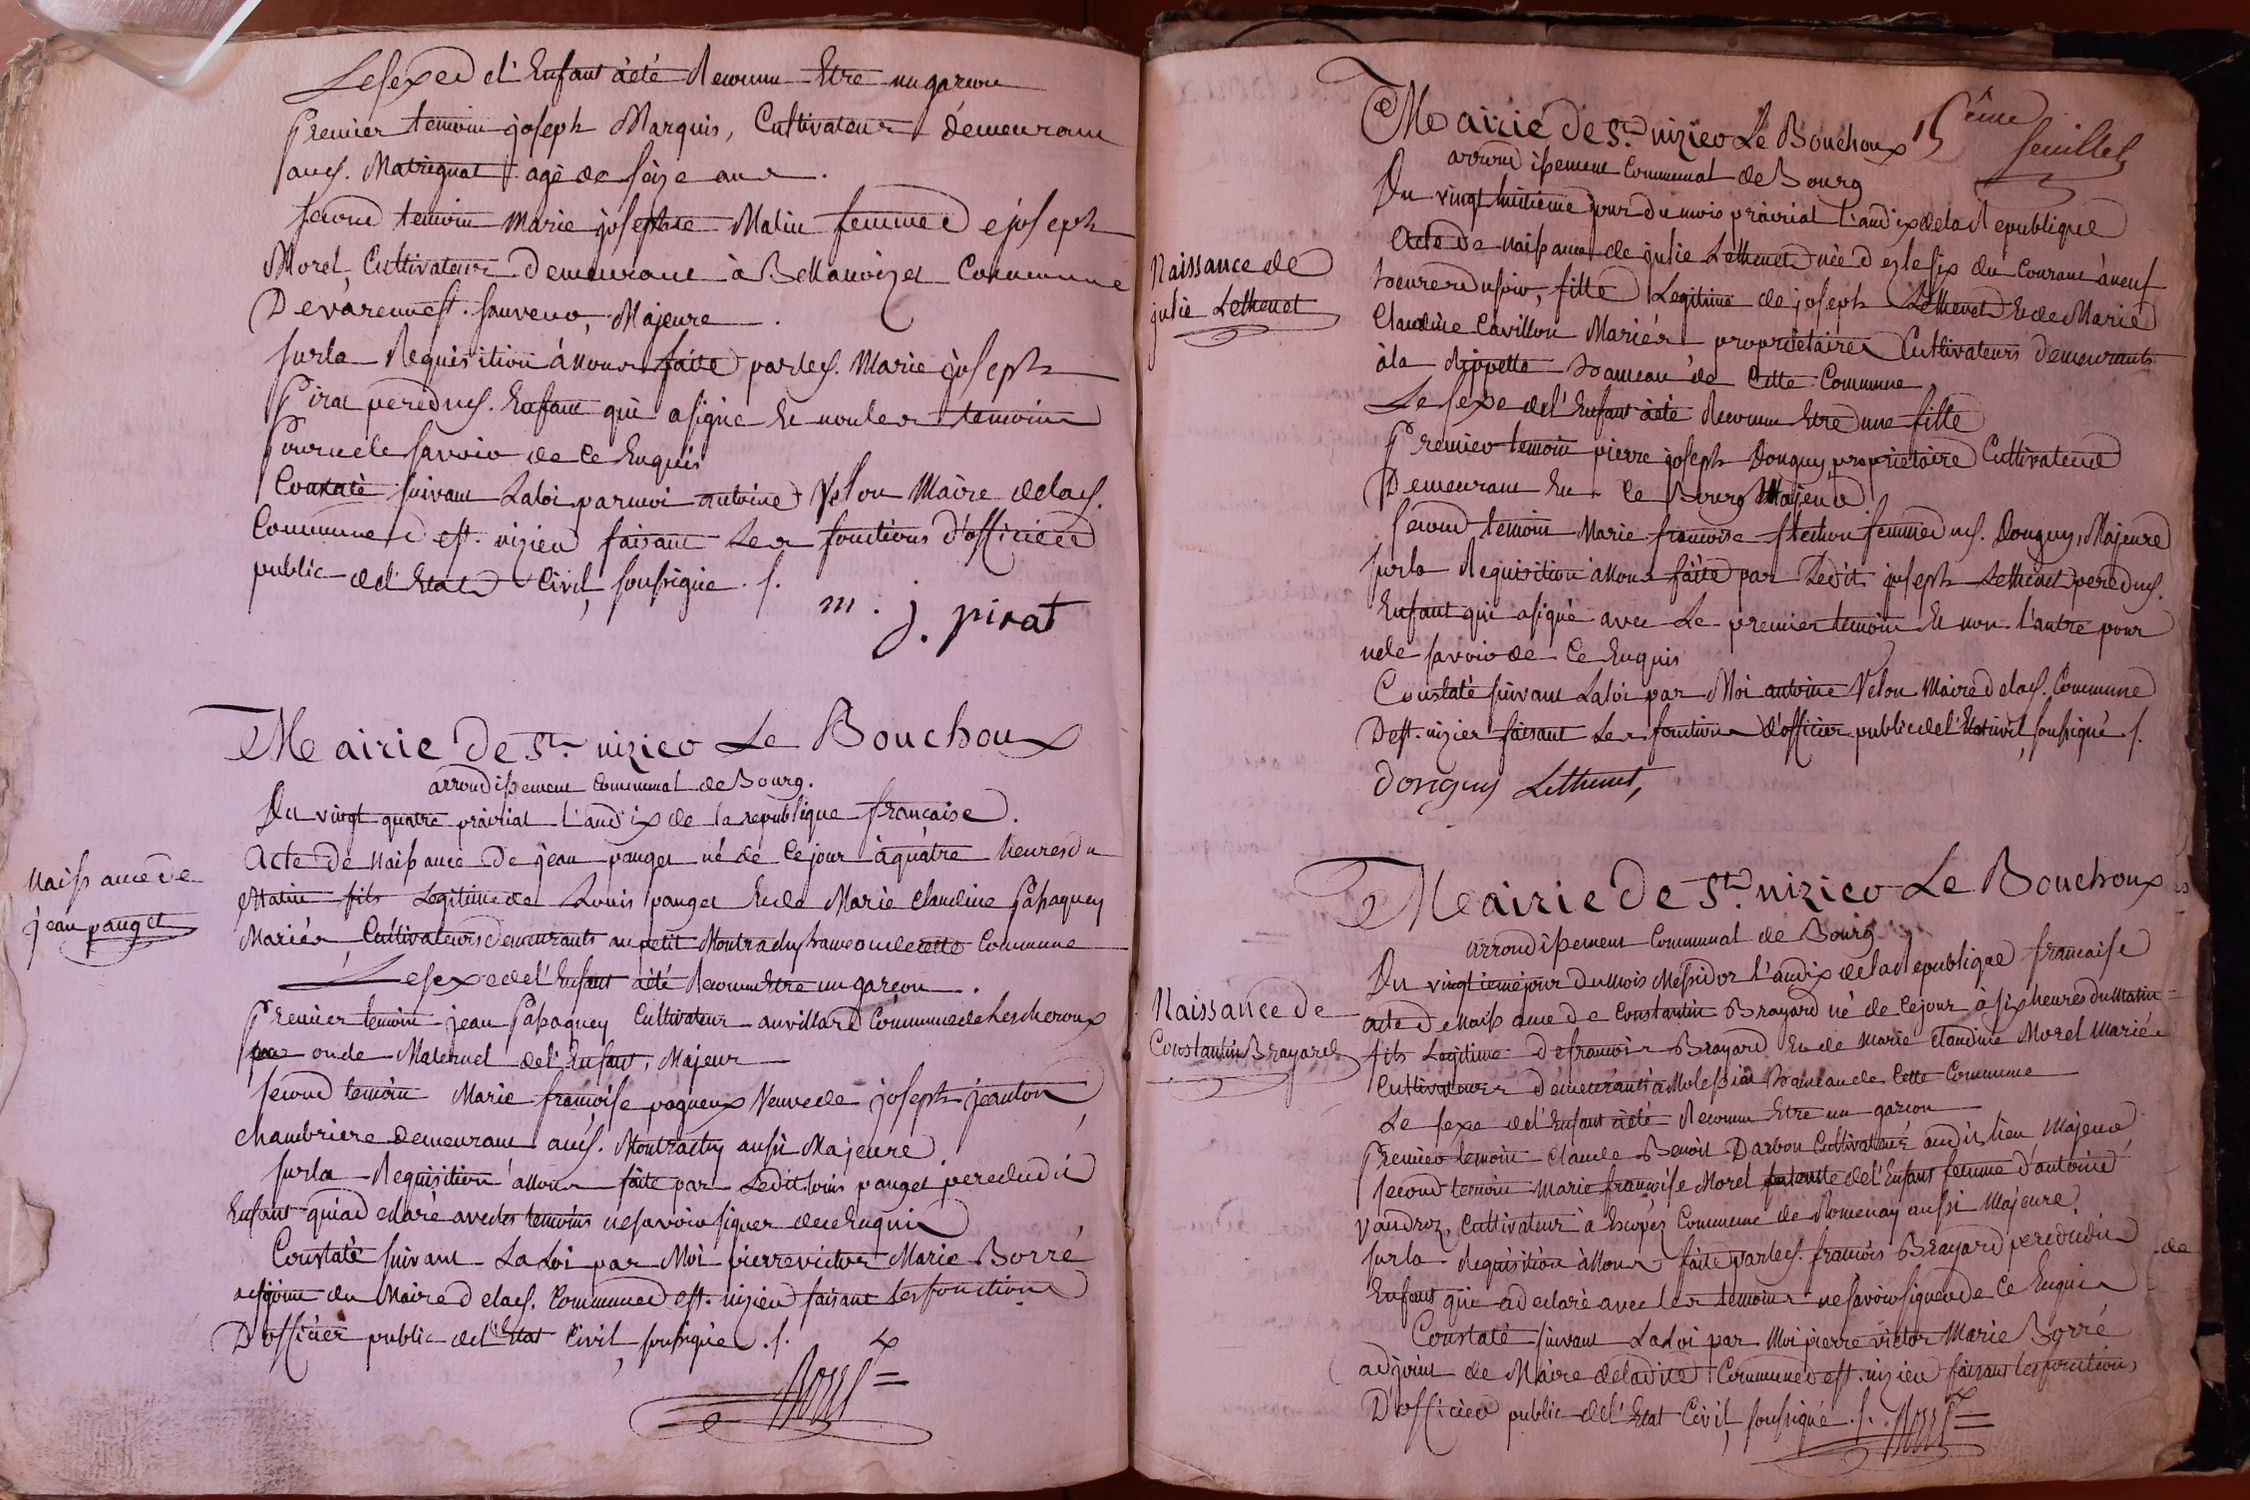 Le sexe de l'Enfant à été Reconnu Etre un garcon
Premier temoin joseph Marquis, Cultivateur démeurant
aud. Matrignat agé de seize ans.
second temoin marie josephte Matin femme de joseph
Morel, Cultivateur Demeurant à Commune
De varennes st. sauveur, Majeure.
sur la Requisition à nous faite par led. Marie joseph
Pirat pere dud. Enfant qui a signé et non les temoins
Pour ne le savoir de ce Enquis
Constaté suivant La loi par moi antoine Velon Maire de lad.
Commune de st. nizier faisant Les fonctions d'officier
public de l'Etat Civil, soussigné. /.
m. j. pirat
Mairie De St. nizier Le Bouchoux
arrondissement Communal de Bourg.
Du vingt quatre prairial l'an dix de la republique française.
Naissance de
jean pauget
Acte De Naissance De jean pauget né de Ce jour à quatre heures du
Matin fils Legitime de Louis pauget et de Marie Claudine Passaquey
Mariés, Cultivateurs demeurants au petit Montrachy hameau de cette Commune
Le sexe de l'Enfant à été Reconnu Etre un garçon.
Premier temoin jean Passaquey Cultivateur au villard Commune de Lescheroux
oncle Maternel de l'Enfant, Majeur
second temoin Marie françoise paqueux Veuve de joseph jeanton
Chambriere demeurant aud. Montrachy aussi Majeure
sur la Requisition à nous faite par Ledit Louis pauget pere dudit
Enfant qui a déclaré avec les temoins ne savoir signer de ce Enquis
Constaté suivant La Loi par Moi pierre victor Marie Borré
adjoint du Maire de lad. Commune de st. nizier faisant Les fonctions
D'officier public de l'Etat Civil, soussigné. /.
Borré
15ème
feuillet
Mairie De St. nizier Le Bouchoux
arrondissement Communal de Bourg
Du vingt huitieme jour du mois prairial l'an dix de la Republique
Naissance de
julie Lethenet
Acte De naissance de julie Lethenet née dez le six du Courant à neuf
heures du soir, fille Legitime de joseph Lethenet et de Marie
Claudine Cavillon Mariés proprietaires Cultivateurs demeurants
à la hameau de Cette Commune
Le sexe de l'Enfant à été Reconnu Etre une fille
Premier temoin pierre joseph Donguy proprietaire Cultivateur
Demeurant En Ce Bourg Majeur
second temoin Marie francoise femme dud. Donguy, Majeure
sur la Requisition à nous faite par Ledit joseph Lethenet pere dud.
Enfant qui a signé avec Le premier temoin et non l'autre pour
ne le savoir de Ce Enquis
Constaté suivant La loi par Moi antoine Velon Maire de lad. Commune
De st. nizier faisant Les fonctions d'officier public de l'Etat civil, soussigné. /.
Donguy Lethenet,
Mairie De St. nizier Le Bouchoux
arrondissement Communal de Bourg
Du vingtieme jour du Mois Messidor l'an dix de la Republique francaise
Naissance de
Constantin Brayard
acte De Naissance De Constantin Brayard né de Ce jour à six heures du Matin
fils Legitime de francois Brayard et de Marie Claudine Morel Mariés
Cultivateurs demeurants à hameau de Cette Commune
Le sexe de l'Enfant à été Reconnu Etre un garcon
Premier temoin Claude Benoit Darbon Cultivateur audit lieu Majeur
second temoin Marie françoise Morel tante de l'Enfant femme d'antoine
Vandroz, Cultivateur à Commune de Romenay aussi Majeure.
sur la Requisition à Nous faite par led. francois Brayard pere dudit
Enfant qui a declaré avec les temoins ne savoir signer de Ce Enquis
Constaté suivant La Loi par Moi pierre victor Marie Borré
adjoint de Maire de ladite Commune de st. nizier faisant les fonctions
D'officier public de l'Etat Civil, soussigné. /. Borré